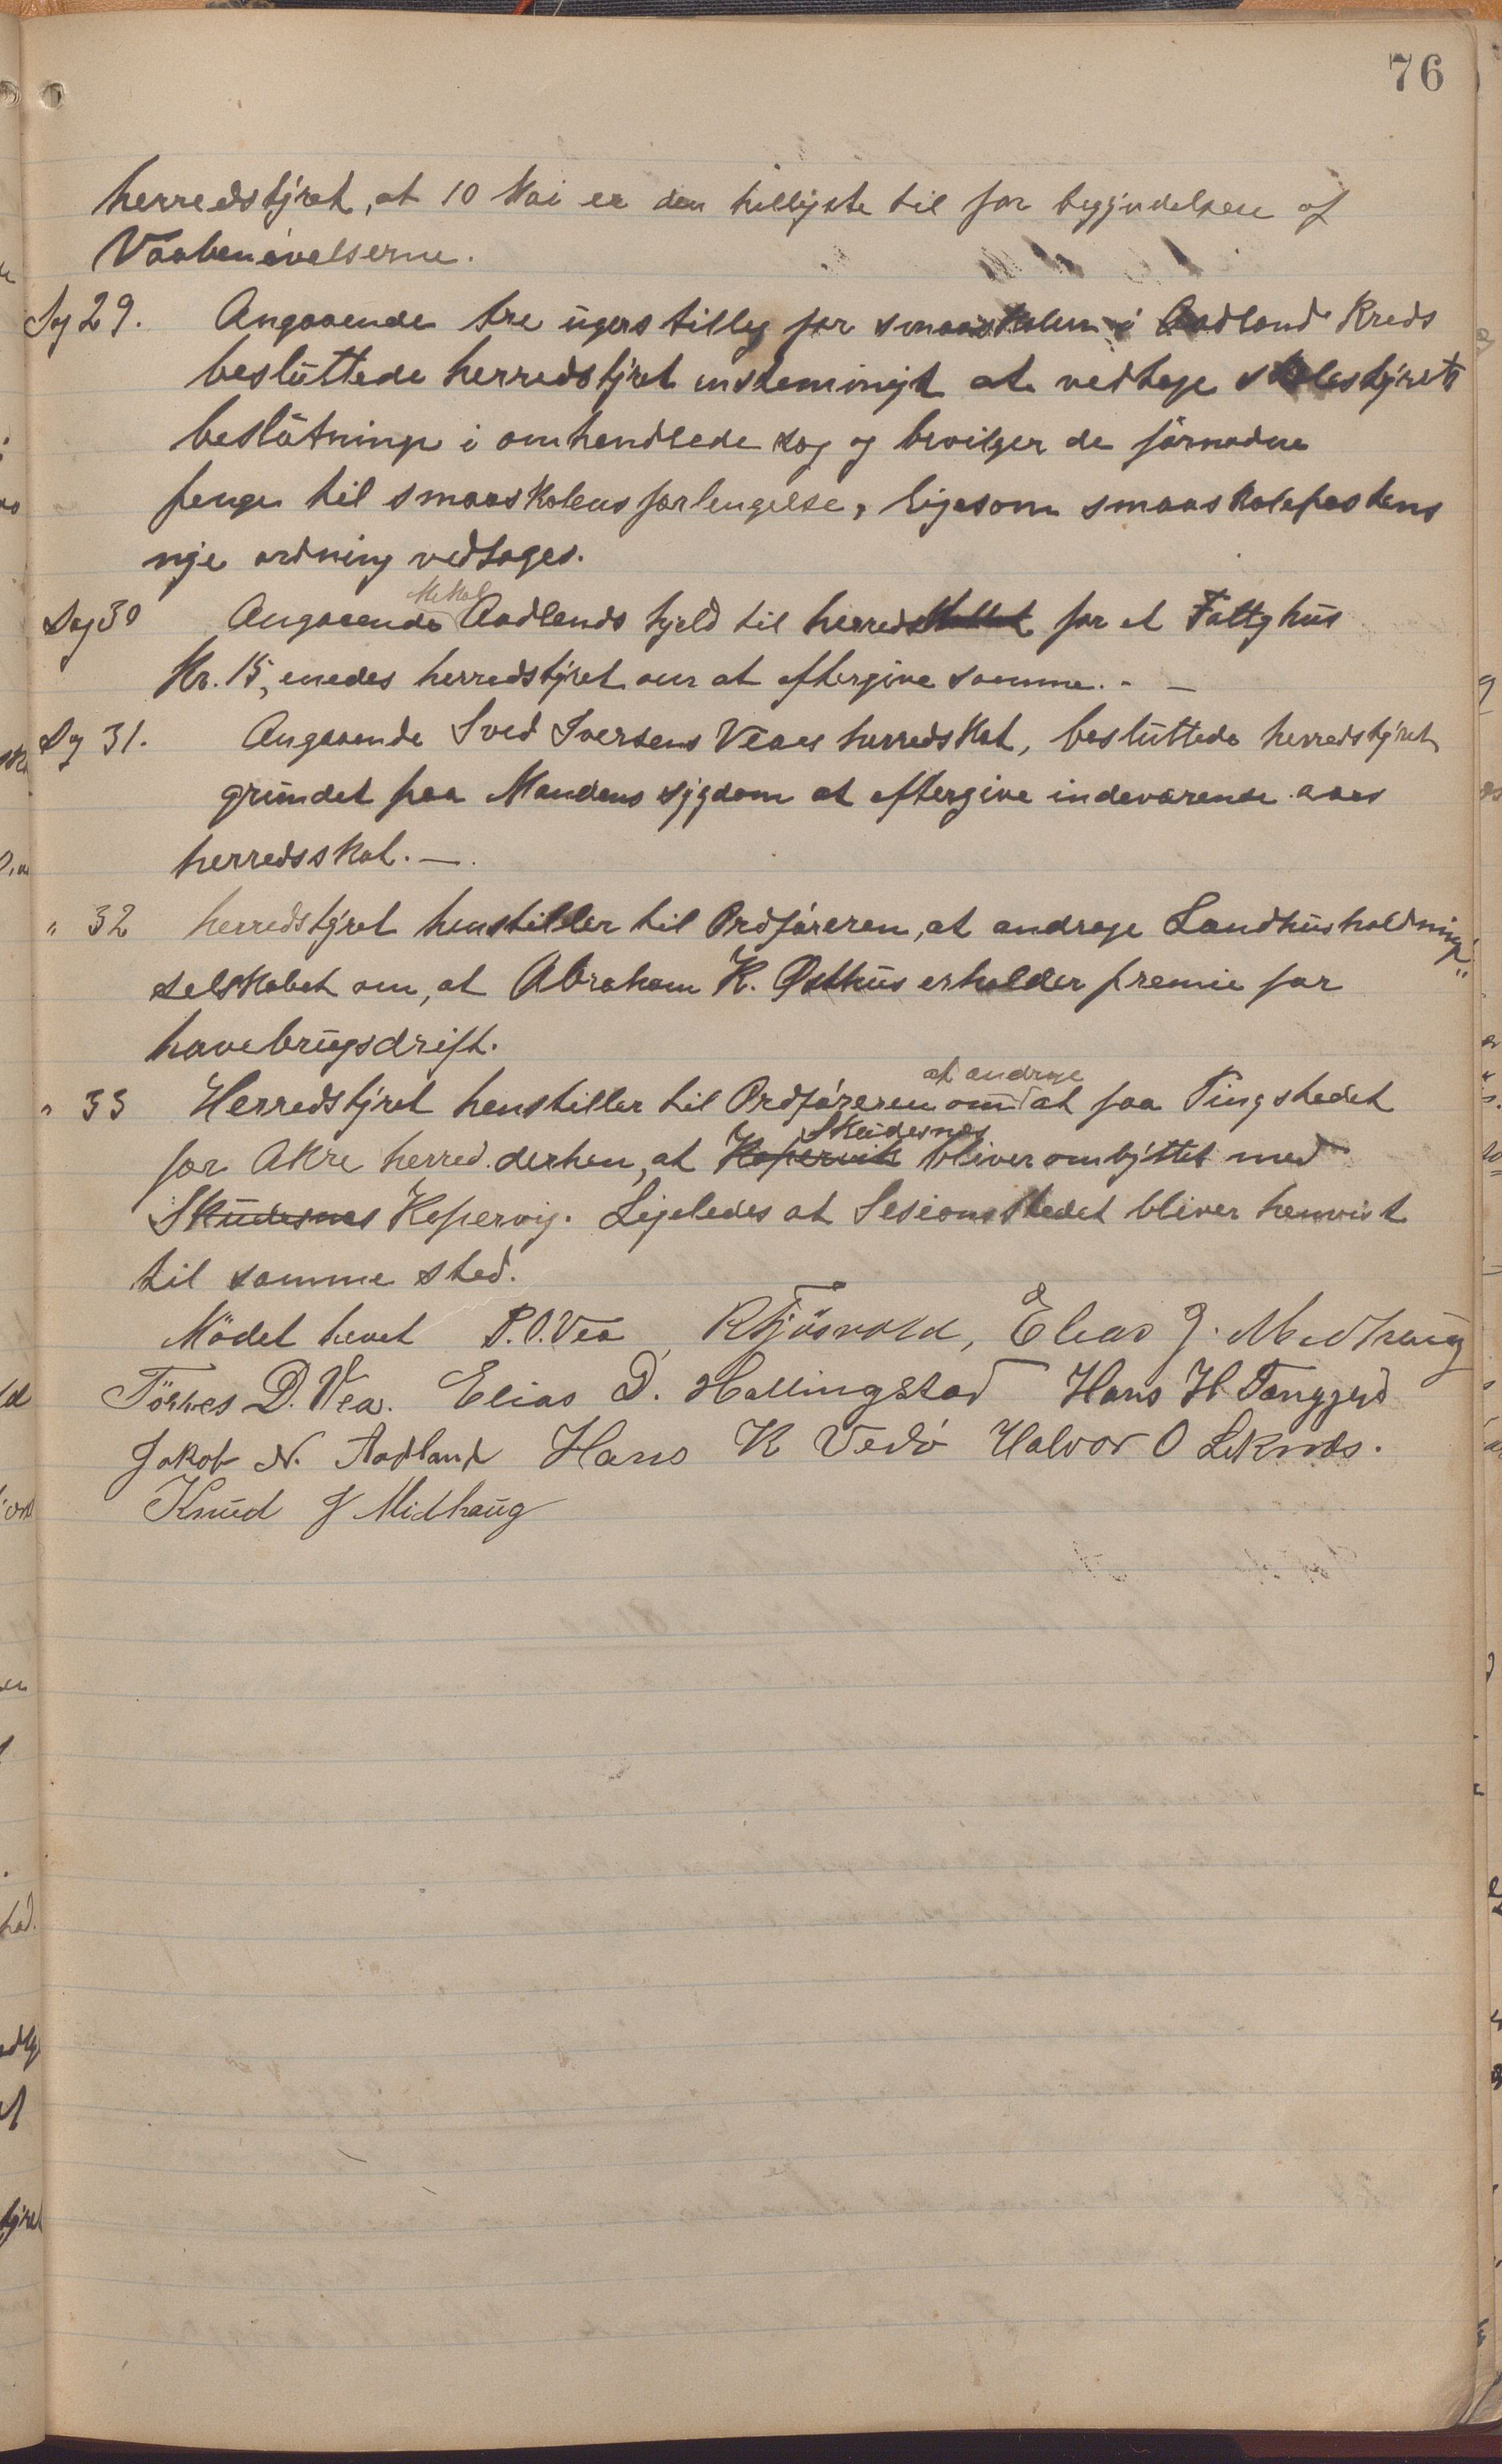 76
herredstyret, at 10 Mai er den billigste til for begyndelsen af
Vaabenøvelserne.
Sag 29. Angaaende tre ugers tillæg for smaaskolen i Aadland Kreds
besluttede herredstyret enstemmigt at vedtage skolestyrets
beslutning i omhendlede sag og bevilger de fornødne
penge til smaaskolens forlengelse, ligesom smaaskolepostens
nye ordning vedtages.
Sag 30 Angaaende Mikal Aadlands gjeld til herredskallet for et Fattghus
Kr. 15, enedes herredstyret om at eftergive samme. - -
Sag 31. Angaaende Sved Iversens Veaes herredskat, besluttede herredstyret
grundet paa Mandens sygdom at eftergive indeværende aars
herredsskat. -.
" 32 herredstyret henstiller til Ordføreren, at andrage Landhusholdnings"
selskabet om, at Abraham K. Østhus erholder premie for
havebrugsdrift.
" 33 Herredstyret henstiller til Ordføreren om at andrage at faa Tingstedet
for Akre herred derhen, at Kopervik Skudesnes bliver ombyttet med
Skudesnes Kopervig. Ligeledes at Sesionsstedet bliver henvist
til samme sted.
Mödet hevet P.O. Vea, R Fjösvold, Elias J. Midthaug
Törres D. Vea. Elias D. Hallingstad Hans H Tangjerd
Jakob N. Aadland Hans K Vedö Halvor O Leknes.
Knud J Midhaug